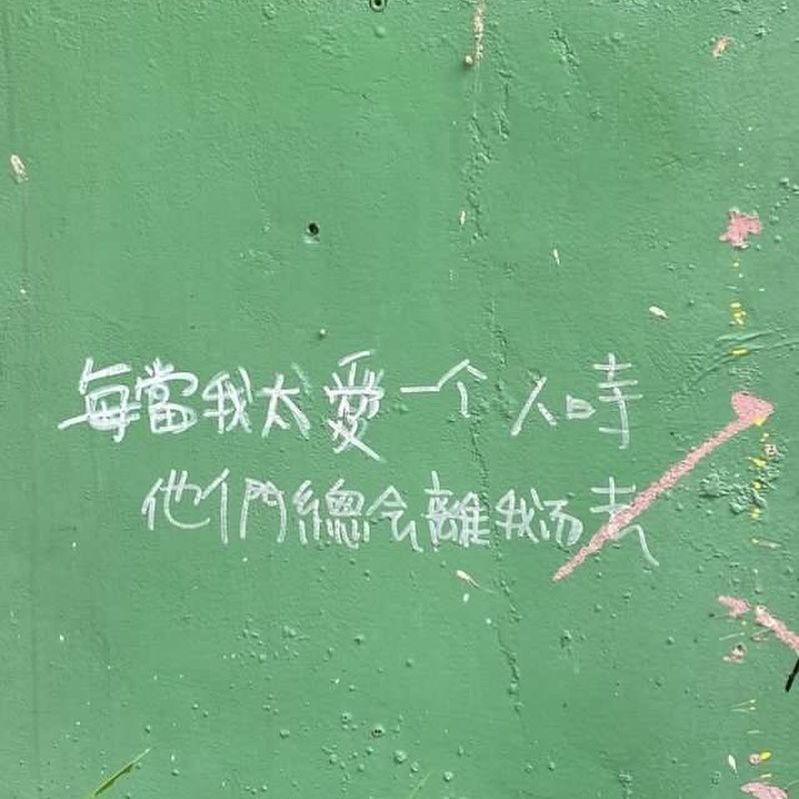 每當我太愛一个人時
他們總会離我而去